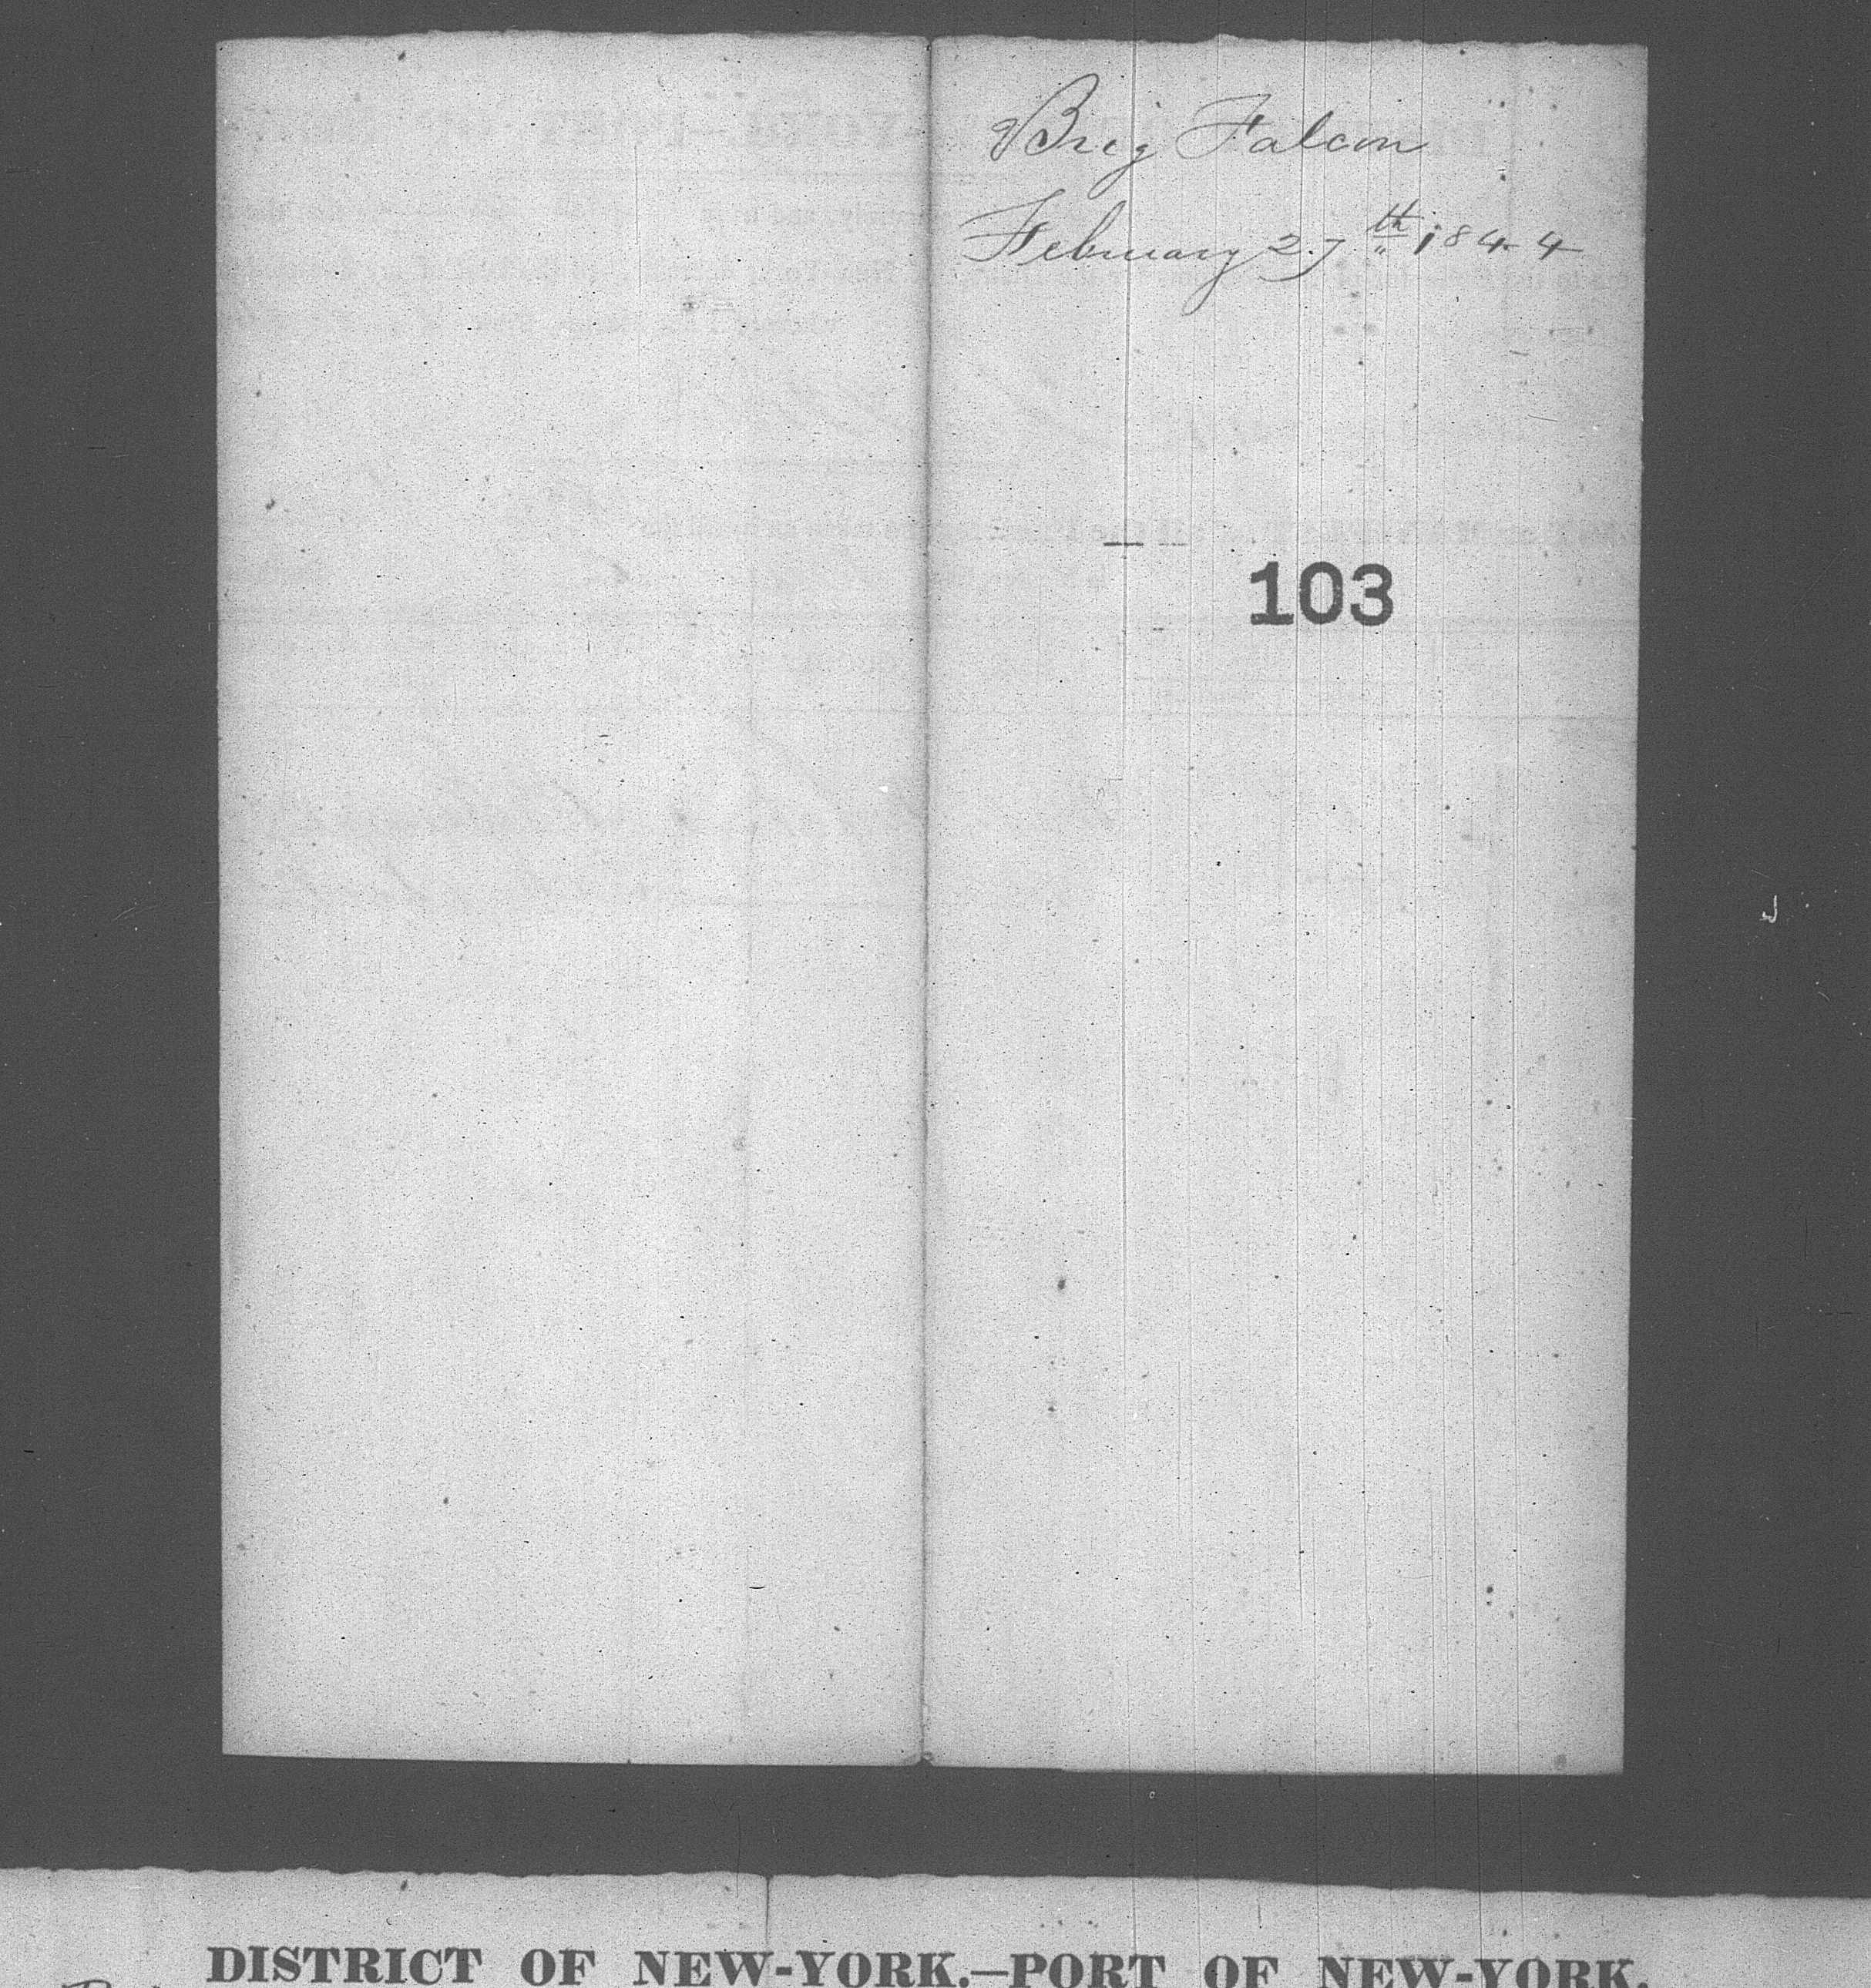 Brig Falcon
February 27th 1844
103
DISTRICT OF NEW-YORK.—PORT OF NEW-YORK.